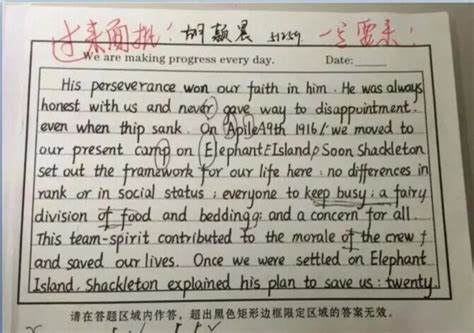 过来面批! 胡颖晨 51259 一定要来!
We are making progress every day. Date:
His perseverance won our faith in him. He was always
honest with us and never gave way to disappointment.
even when thip sank. On Apile A9th 1916/. we moved to
our present camp on Elephant Island, Soon Shackleton
set out the framework for our life here : no differences in
rank or in social status ; everyone to keep busy ; a fairy
division of food and bedding; and a concern for all.
This team-spirit contributed to the morale of the crew
and saved our lives. Once we were settled on Elephant
Island, Shackleton explained his plan to save us : twenty
请在答题区域内作答，超出黑色矩形边框限定区域的答案无效。